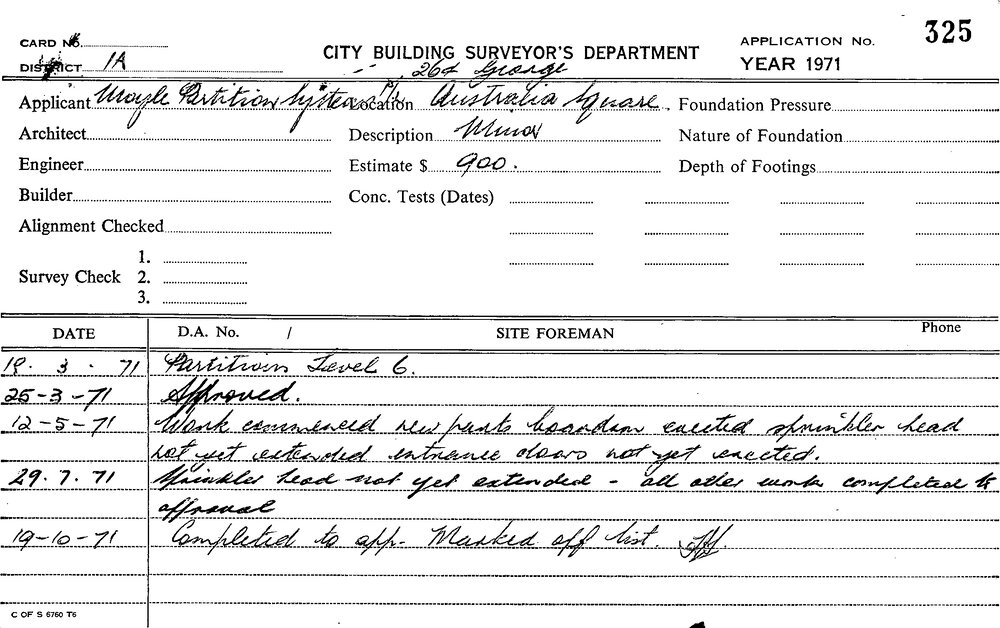 CARD No.
325
CITY BUILDING SURVEYOR'S DEPARTMENT
APPLICATION No.
DISTRICT 1A
YEAR 1971
264 George
Applicant Moyle Partition Systems P/L Location Australia Square Foundation Pressure
Architect Description Minor Nature of Foundation
Engineer Estimate $ 900. Depth of Footings
Builder Conc. Tests (Dates)
Alignment Checked
1.
Survey Check 2.
3.
DATE D.A. No. / SITE FOREMAN Phone
19. 3. 71 Partitions Level 6.
25-3-71 Approved.
12-5-71 Work commenced new boardroom erected sprinkler head
not yet extended entrance doors not yet erected.
29.7.71 Sprinkler head not yet extended - all other work completed to
approval
19-10-71 Completed to app. Marked off list.
C OF S 6760 T6